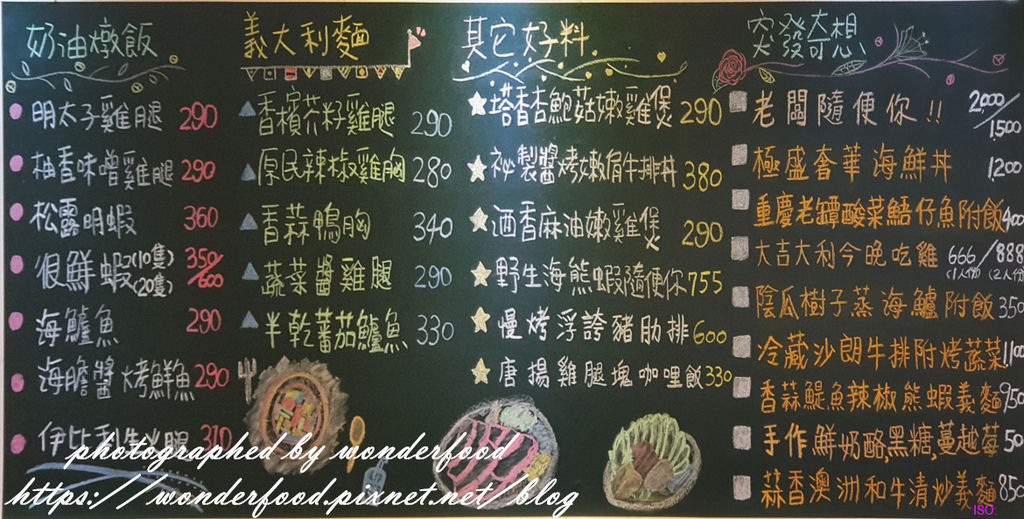 奶油燉飯
明太子雞腿 290
柚香味噌雞腿 290
松露明蝦 360
很鮮蝦 (10隻) 350/
(20隻) 600
海鱸魚 290
海膽醬烤鮮魚 290
伊比利 310
義大利麵
香檳芥籽雞腿 290
原民辣椒雞胸 280
香蒜鴨胸 340
蔬菜醬雞腿 290
半乾蕃茄鱸魚 330
其它好料
塔香杏鮑菇嫩雞煲 290
祕製醬烤嫩肩牛排丼 380
酒香麻油嫩雞煲 290
野生海熊蝦隨便你 755
慢烤浮誇豬肋排 600
唐揚雞腿塊咖哩飯 330
突發奇想
老闆隨便你!! 2000/
1500
極盛奢華海鮮丼 1200
重慶老罈酸菜鱔仔魚附飯 400
大吉大利今晚吃雞 666/888
(1人份) (2人份)
陰瓜樹子蒸海鱸附飯 350
冷藏沙朗牛排附烤蔬菜 1100
香蒜鯷魚辣椒熊蝦義麵 950
手作鮮奶酪,黑糖,蔓越莓 50
蒜香澳洲和牛清炒義麵 850
photographed by wonderfood
https://wonderfood.pixnet.net/blog
ISO: